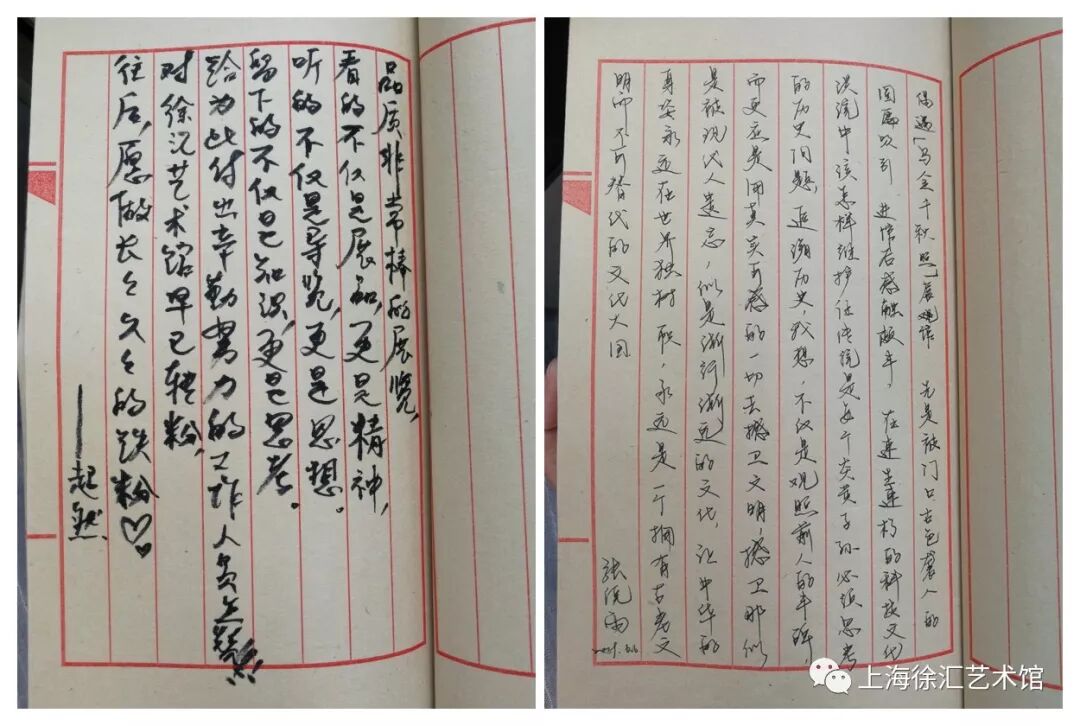 品质非常棒的展览,
看的不仅是展品,更是精神,
听的不仅是导览,更是思想。
留下的不仅是知识,更是思考。
给为此付出辛勤努力的工作人员点赞!!
对徐汇艺术馆早已转粉,
往后,愿做长长久久的铁粉♡♥
——然
偶遇「乌金千秋照」展 先是被门口古色袭人的
吸引 进馆后感触颇丰,在的科技文化
洪流中该怎样维护住传统是每个炎黄子孙必须思考
的历史问题,追溯历史,我想,不仅是观照前人的丰碑,
而更应是用真实可感的一切去撼卫文明,撼卫那似
是被现代人遗忘,似是渐行渐远的文化,让中华的
姿永远在世界独树 职,永远是一个拥有古老文
明而不可替代的文化大国
张雨
上海徐汇艺术馆